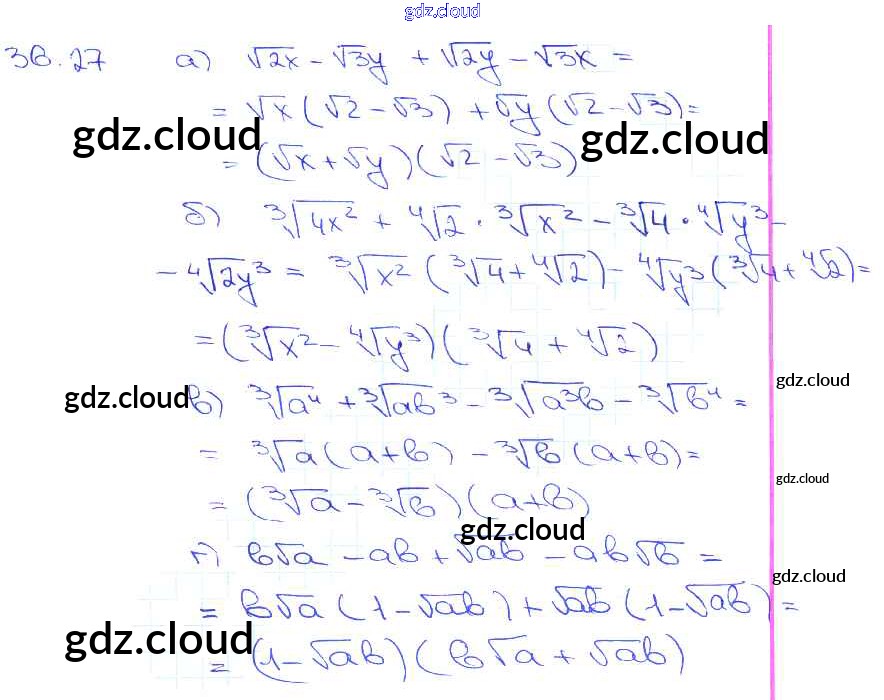 gdz.cloud
36.27 а) √2x - √3y + √2y - √3x =
= √x (√2 - √3) + √y (√2 - √3) =
gdz.cloud gdz.cloud
= (√x + √y)(√2 - √3)
б) ³√4x² + ⁴√2 · ³√x² - ³√4 · ⁴√y³ -
- ⁴√2y³ = ³√x² (³√4 + ⁴√2) - ⁴√y³ (³√4 + ⁴√2) =
= (³√x² - ⁴√y³)(³√4 + ⁴√2)
gdz.cloud
gdz.cloud в) ³√a⁴ + ³√ab³ - ³√a³b - ³√b⁴ =
= ³√a (a+b) - ³√b (a+b) =
gdz.cloud
= (³√a - ³√b)(a+b)
gdz.cloud
г) b√a - ab + √ab - ab√b =
gdz.cloud
= b√a (1 - √ab) + √ab (1 - √ab) =
gdz.cloud
= (1 - √ab)(b√a + √ab)